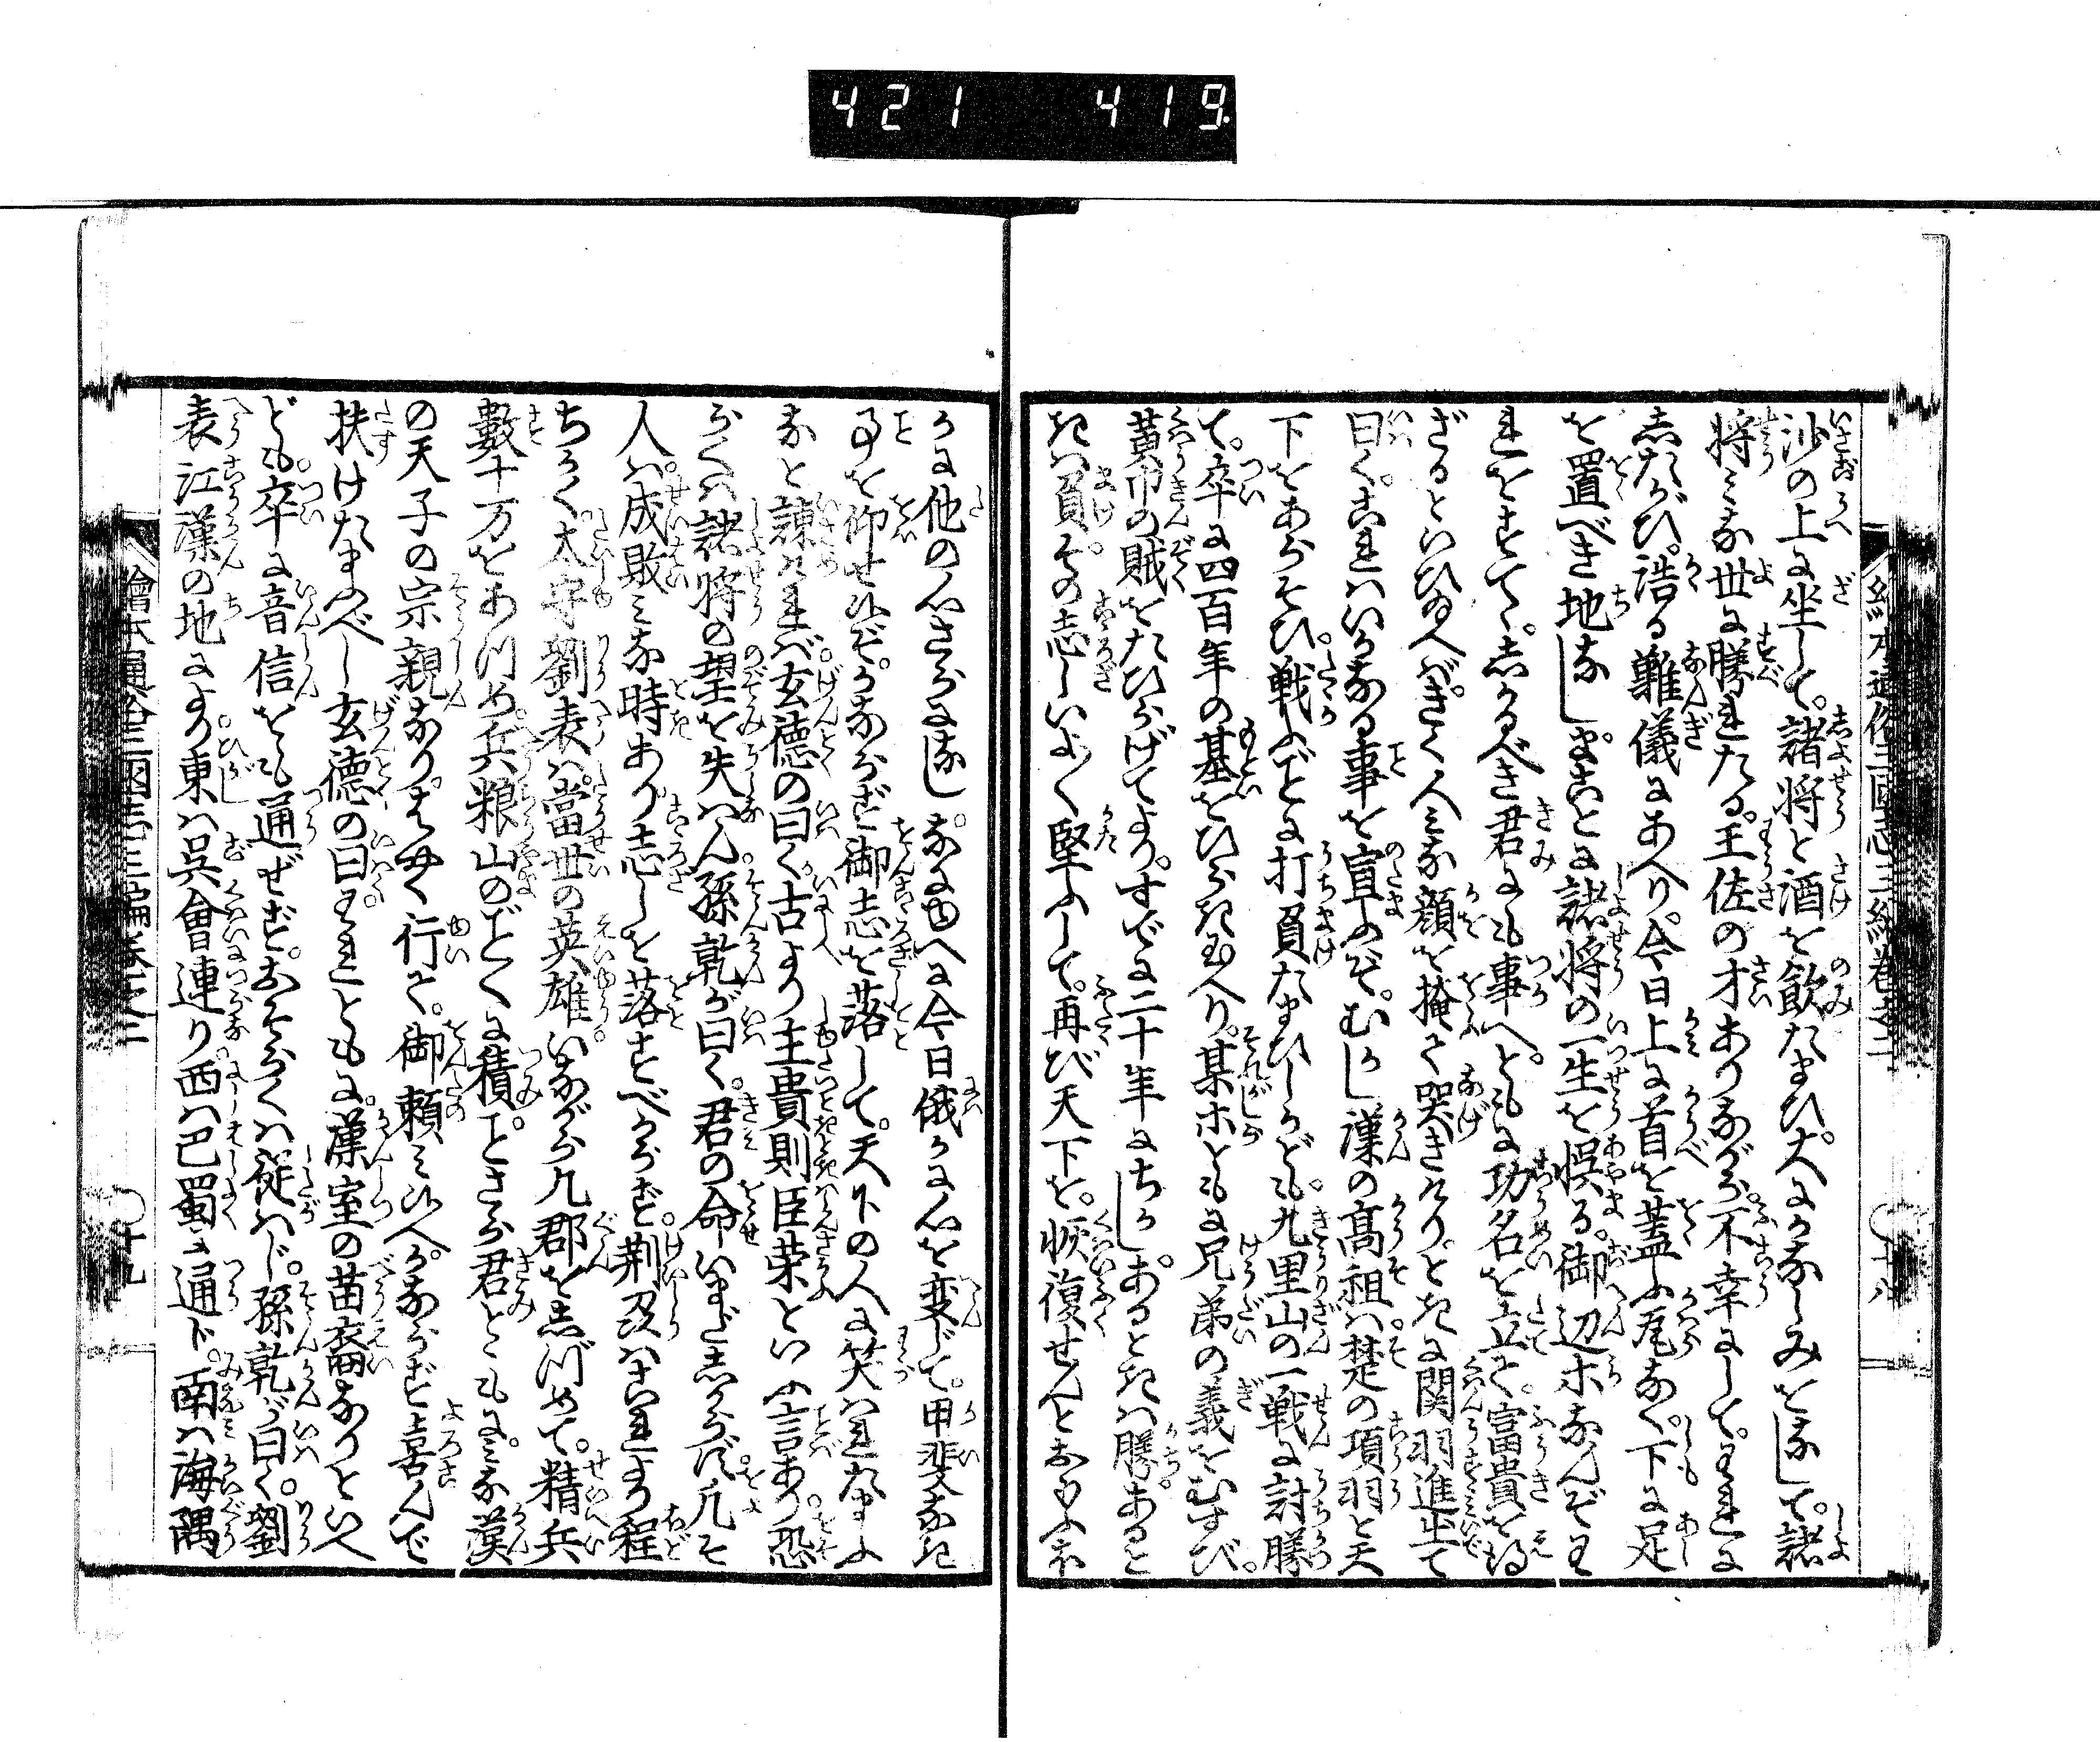 421 419
絵本通俗三國志三編巻之二 ○十八
沙の上に坐して。諸将と酒を飲たまひ大にかなしみをなして。諸
将みな世に勝れたる。王佐の才ありながら。不幸にして。われに
したがひ。浩る難儀にあへり。今日上に首を蓋ふ尾なく。下に足
を置べき地なし。まことに諸将の一生を悞る。御辺ホなんぞわ
れをすてゝ。しかるべき君にも事へ。ともに功名を立て。富貴を得
ざるといひ給へば。きく人みな顔を掩て哭きけり。ときに関羽進出て
曰く。これはいかなる事を宣ふぞ。むかし漢の高祖は。楚の項羽と天
下をあらそひ。戦ふごとに打負たまひしかども。九里山の一戦に討勝
て。卒に四百年の基をひらき玉へり。某ホともに兄弟の義をむすび。
黄巾の賊をたひらげてより。すでに二十年にちかし。あるときは勝。あると
きは負。その志しいよ〱堅ふして。再び天下を。恢復せんとおもふに
かに他の心さらになし。なにゆへに今日俄かに心を変じて。甲斐なき
事を仰せ候ぞ。かならず御志を落して。天下の人に笑はれたまふ
なと諫ければ。玄徳の曰く。古より主貴則臣栄といふ言あり。恐
らくは諸将の望を失はん。孫乾が曰く。君の命いまだしからず。凡そ
人は。成敗みな時あり。志しを落すべからず。荆刕はこれより程
ちかく。太守劉表は。當世の英雄。いながら九郡をしづめて。精兵
數十万をあつめ。兵粮山のごとくに積。ことさら君とともに。みな漢
の天子の宗親なり。はやく行て。御頼み候へ。かならず喜んで
扶けたまふべし。玄徳の曰。われともに。漢室の苗裔なりといへ
ども。卒に音信をも通ぜず。おそらくは従はじ。孫乾が曰く。劉
表江漢の地により。東は呉會連り。西は巴蜀に通ド。南は海隅
繪本通俗三國志三編巻之二 ○十九